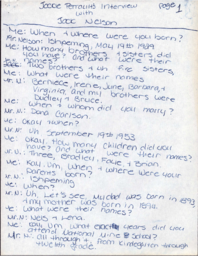 Jodde Perrault's Interview Page 1
with
Jack Nelson
Me: When & where were you born?
Mr. Nelson: Ishpeming, May 19th 1929
Me: How many brothers & sisters did
you have? and what were their
Two brothers & uh five sisters,
Me: What were their names
Mr. N: Bernece, Irene, June, Barbara,
Virginia, and my brothers were
Dudley & Bruce.
Me: When & whom did you marry?
Mr. N: Dona Carlson.
Me: Okay. When?
Mr. N: Uh September 19th 1953
Me: Okay. How many children did you
have? and what were their names?
Mr. N: Three, Bradley, Faye, & Brian.
Me: Kay. Um. When & where were your
parents born?
Mr. N: Ishpeming
Me: When?
Mr. N: Uh. Let's see, my dad was born in 1893
& my mother was born in 1894.
Me: What were their names?
Mr. N: Nels & Lena.
Me: Kay, Um. What years did you
attend National mine School?
Mr. N: All through, from Kindergarten through
twelfth grade.